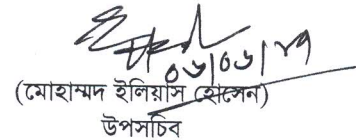 ০৬/০৬/২১
(মোহাম্মদ ইলিয়াস হোসেন)
উপসচিব